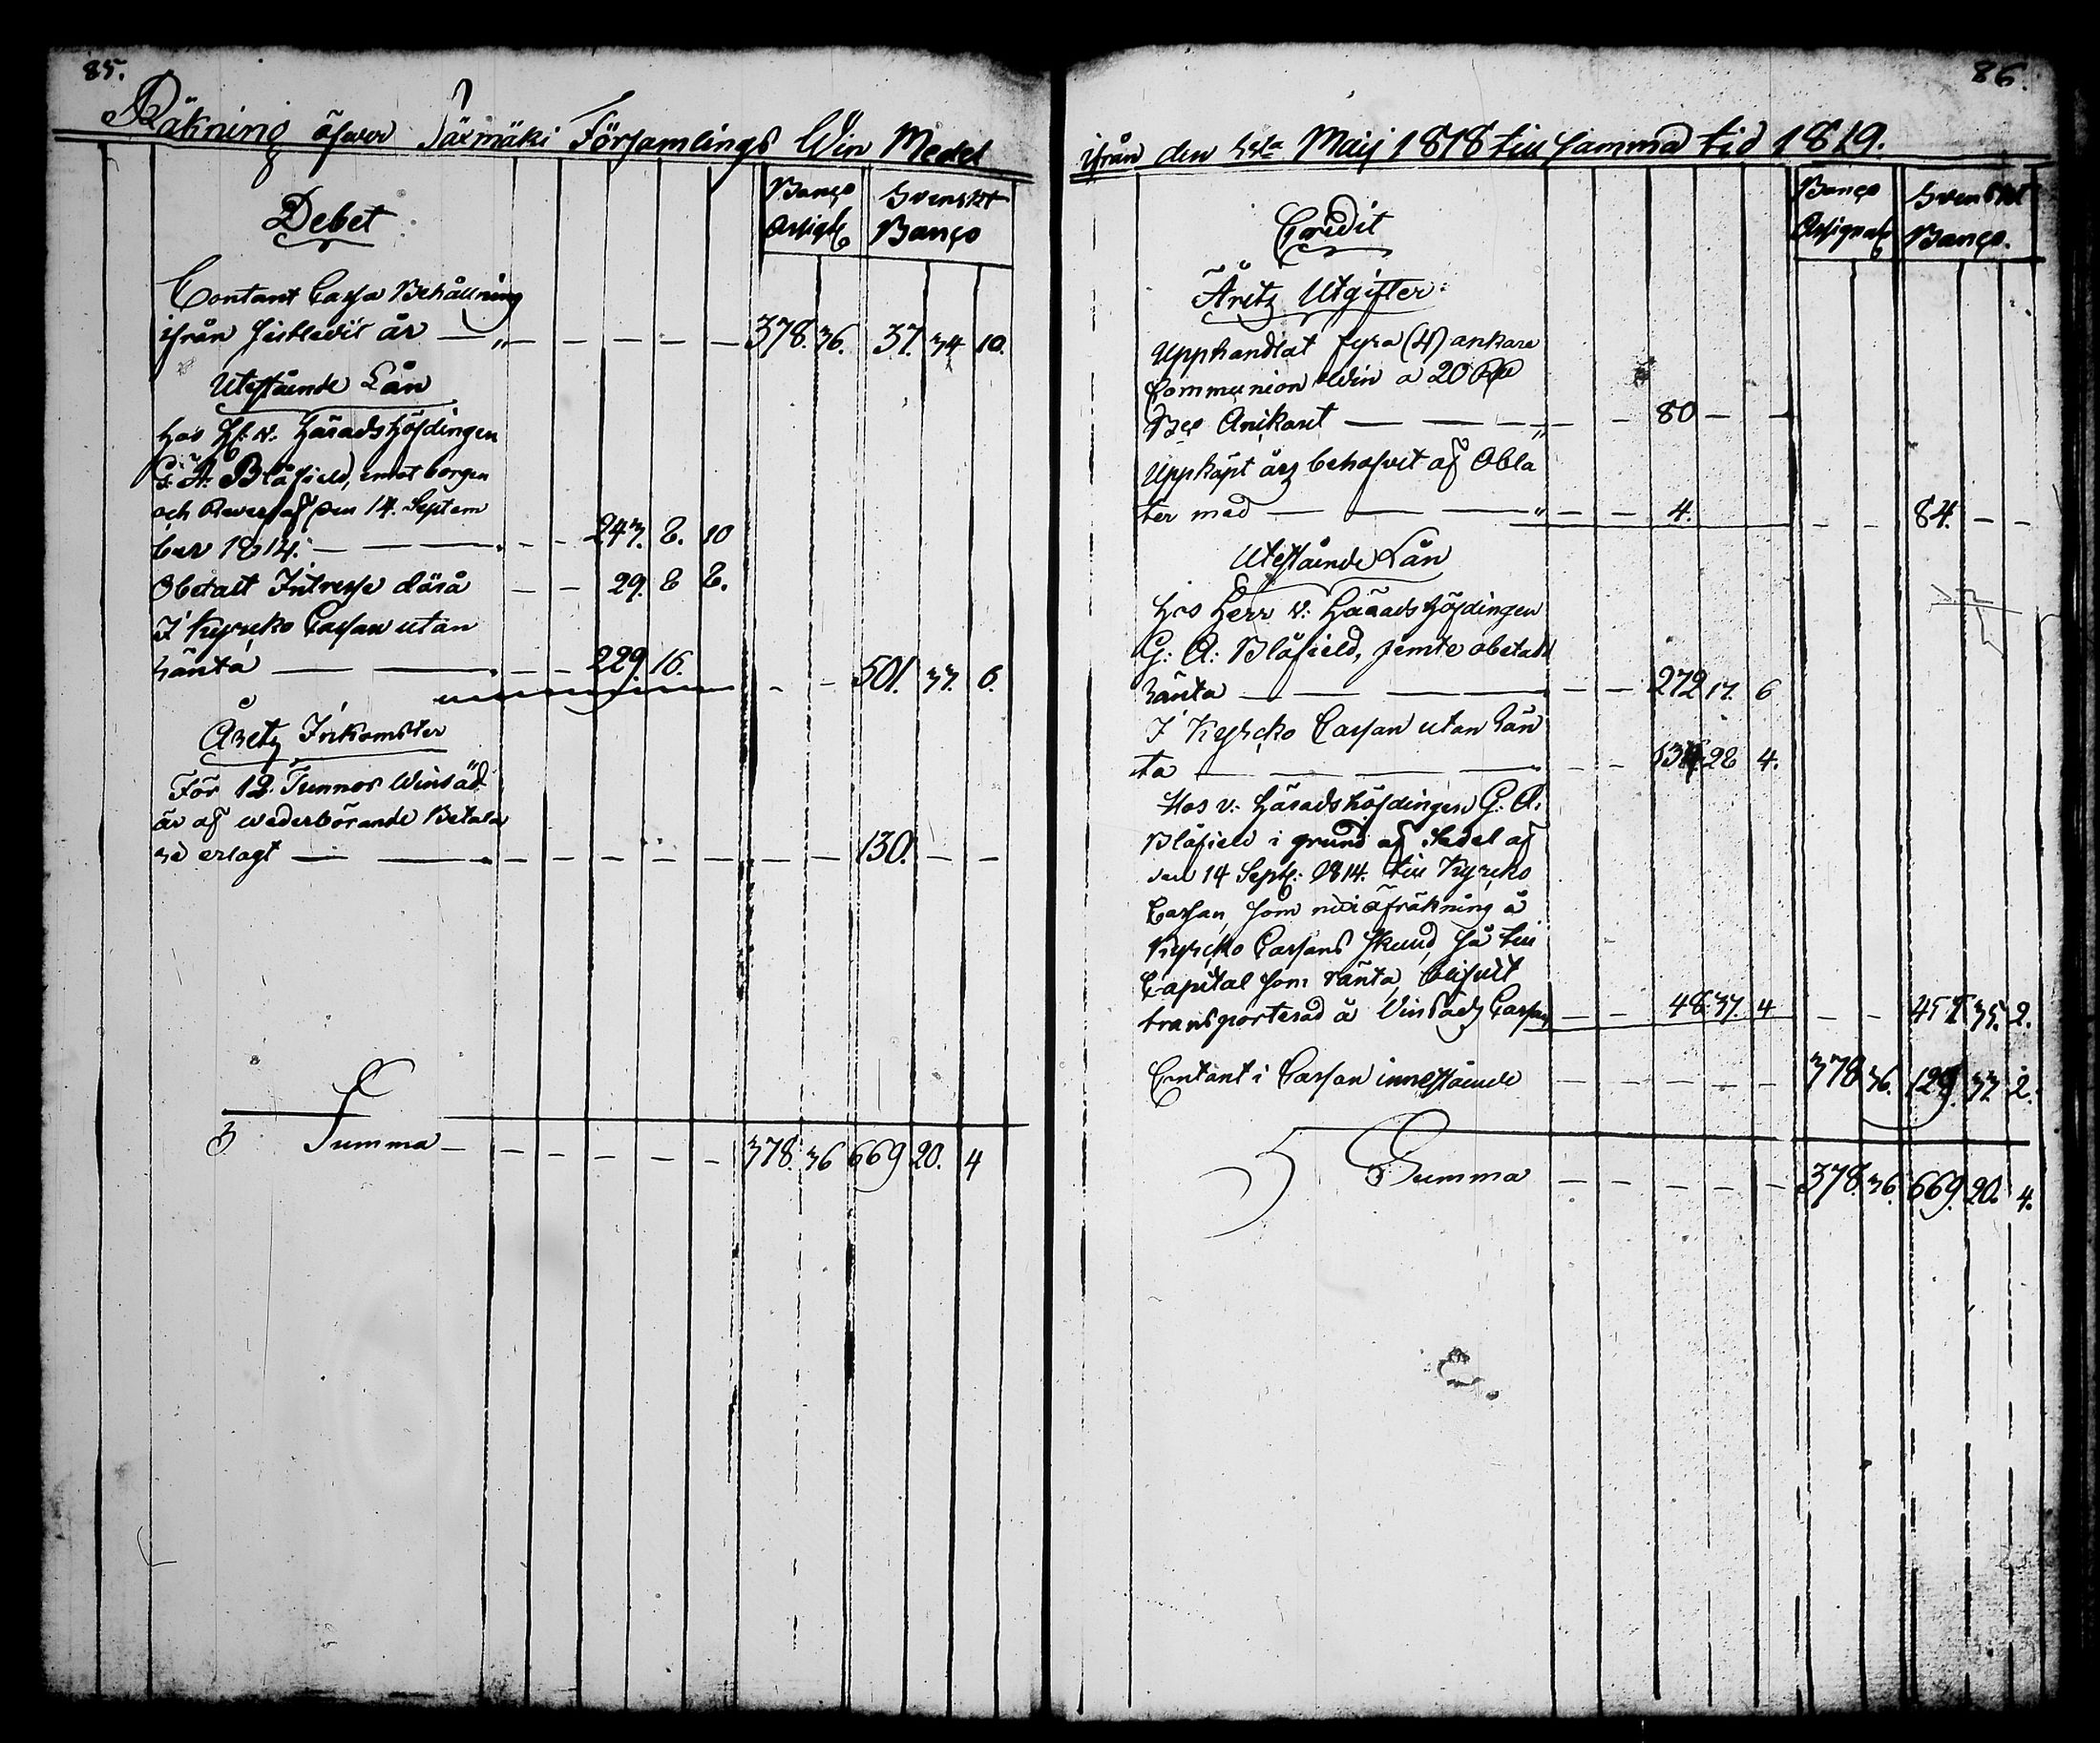 85.
Räkning öfwer Säxmäki Församlings Win Medel
Debet
Banço Assigt:
Svenskt Banço
Contant Cassa Behållning
ifrån sistledit år — „ — — — — — 378. 36. 37. 34 10.
Utestående Lån
hos Hr v. Häradshöfdingen
G: A: Blåfield, emot borgen
och Revers af den 14. Septem
ber 1814. — — — 243. 8. 10
Obetalt Intresse därå — — 29. 8 8.
I Kyrcko Cassan utan
ränta — — — 229. 16. — — 501. 33. 6.
Åretz Inkomster
För 12 Tunnor Winsäd
är af wederbörande Betala
re erlagt — — — — — — — — — 130. — —
Summa — — — — — — 378. 36 669 20. 4
86.
ifrån den 1sta Maij 1818 till samma tid 1819.
Credit
Banço Assignat:
Svenskt Banço.
Åretz Utgifter:
Upphandlat fyra (4) ankare
Communion Win a 20 Rd
Bço Ankaret — — — „ — — 80 — —
Uppköpt årz behofvet af Obla
ter med — — — „ — — 4. — — 84. — —
Utestående Lån
Hos Herr v: Häradshöfdingen
G: A: Blåfield, jemte obetald
ränta — — — — — — 272 17. 6
I Kyrcko Cassan utan rän
ta — — — — — — 134. 28 4.
Hos v: Häradshöfdingen G: A:
Blåfield i grund af Sedel af
den 14 Sept: 1814. till Kyrcko
Cassan, som uti afräkning å
Kyrcko Cassans skuld, så till
Capital som ränta, blifvit
transporterad å Vinsädz Cassan — — 48. 37. 4 — — 455 35. 2.
Contant i Cassan innestående — — — — — 378 36. 129. 33 2.
Summa — — — — — 378. 36. 669. 20. 4.